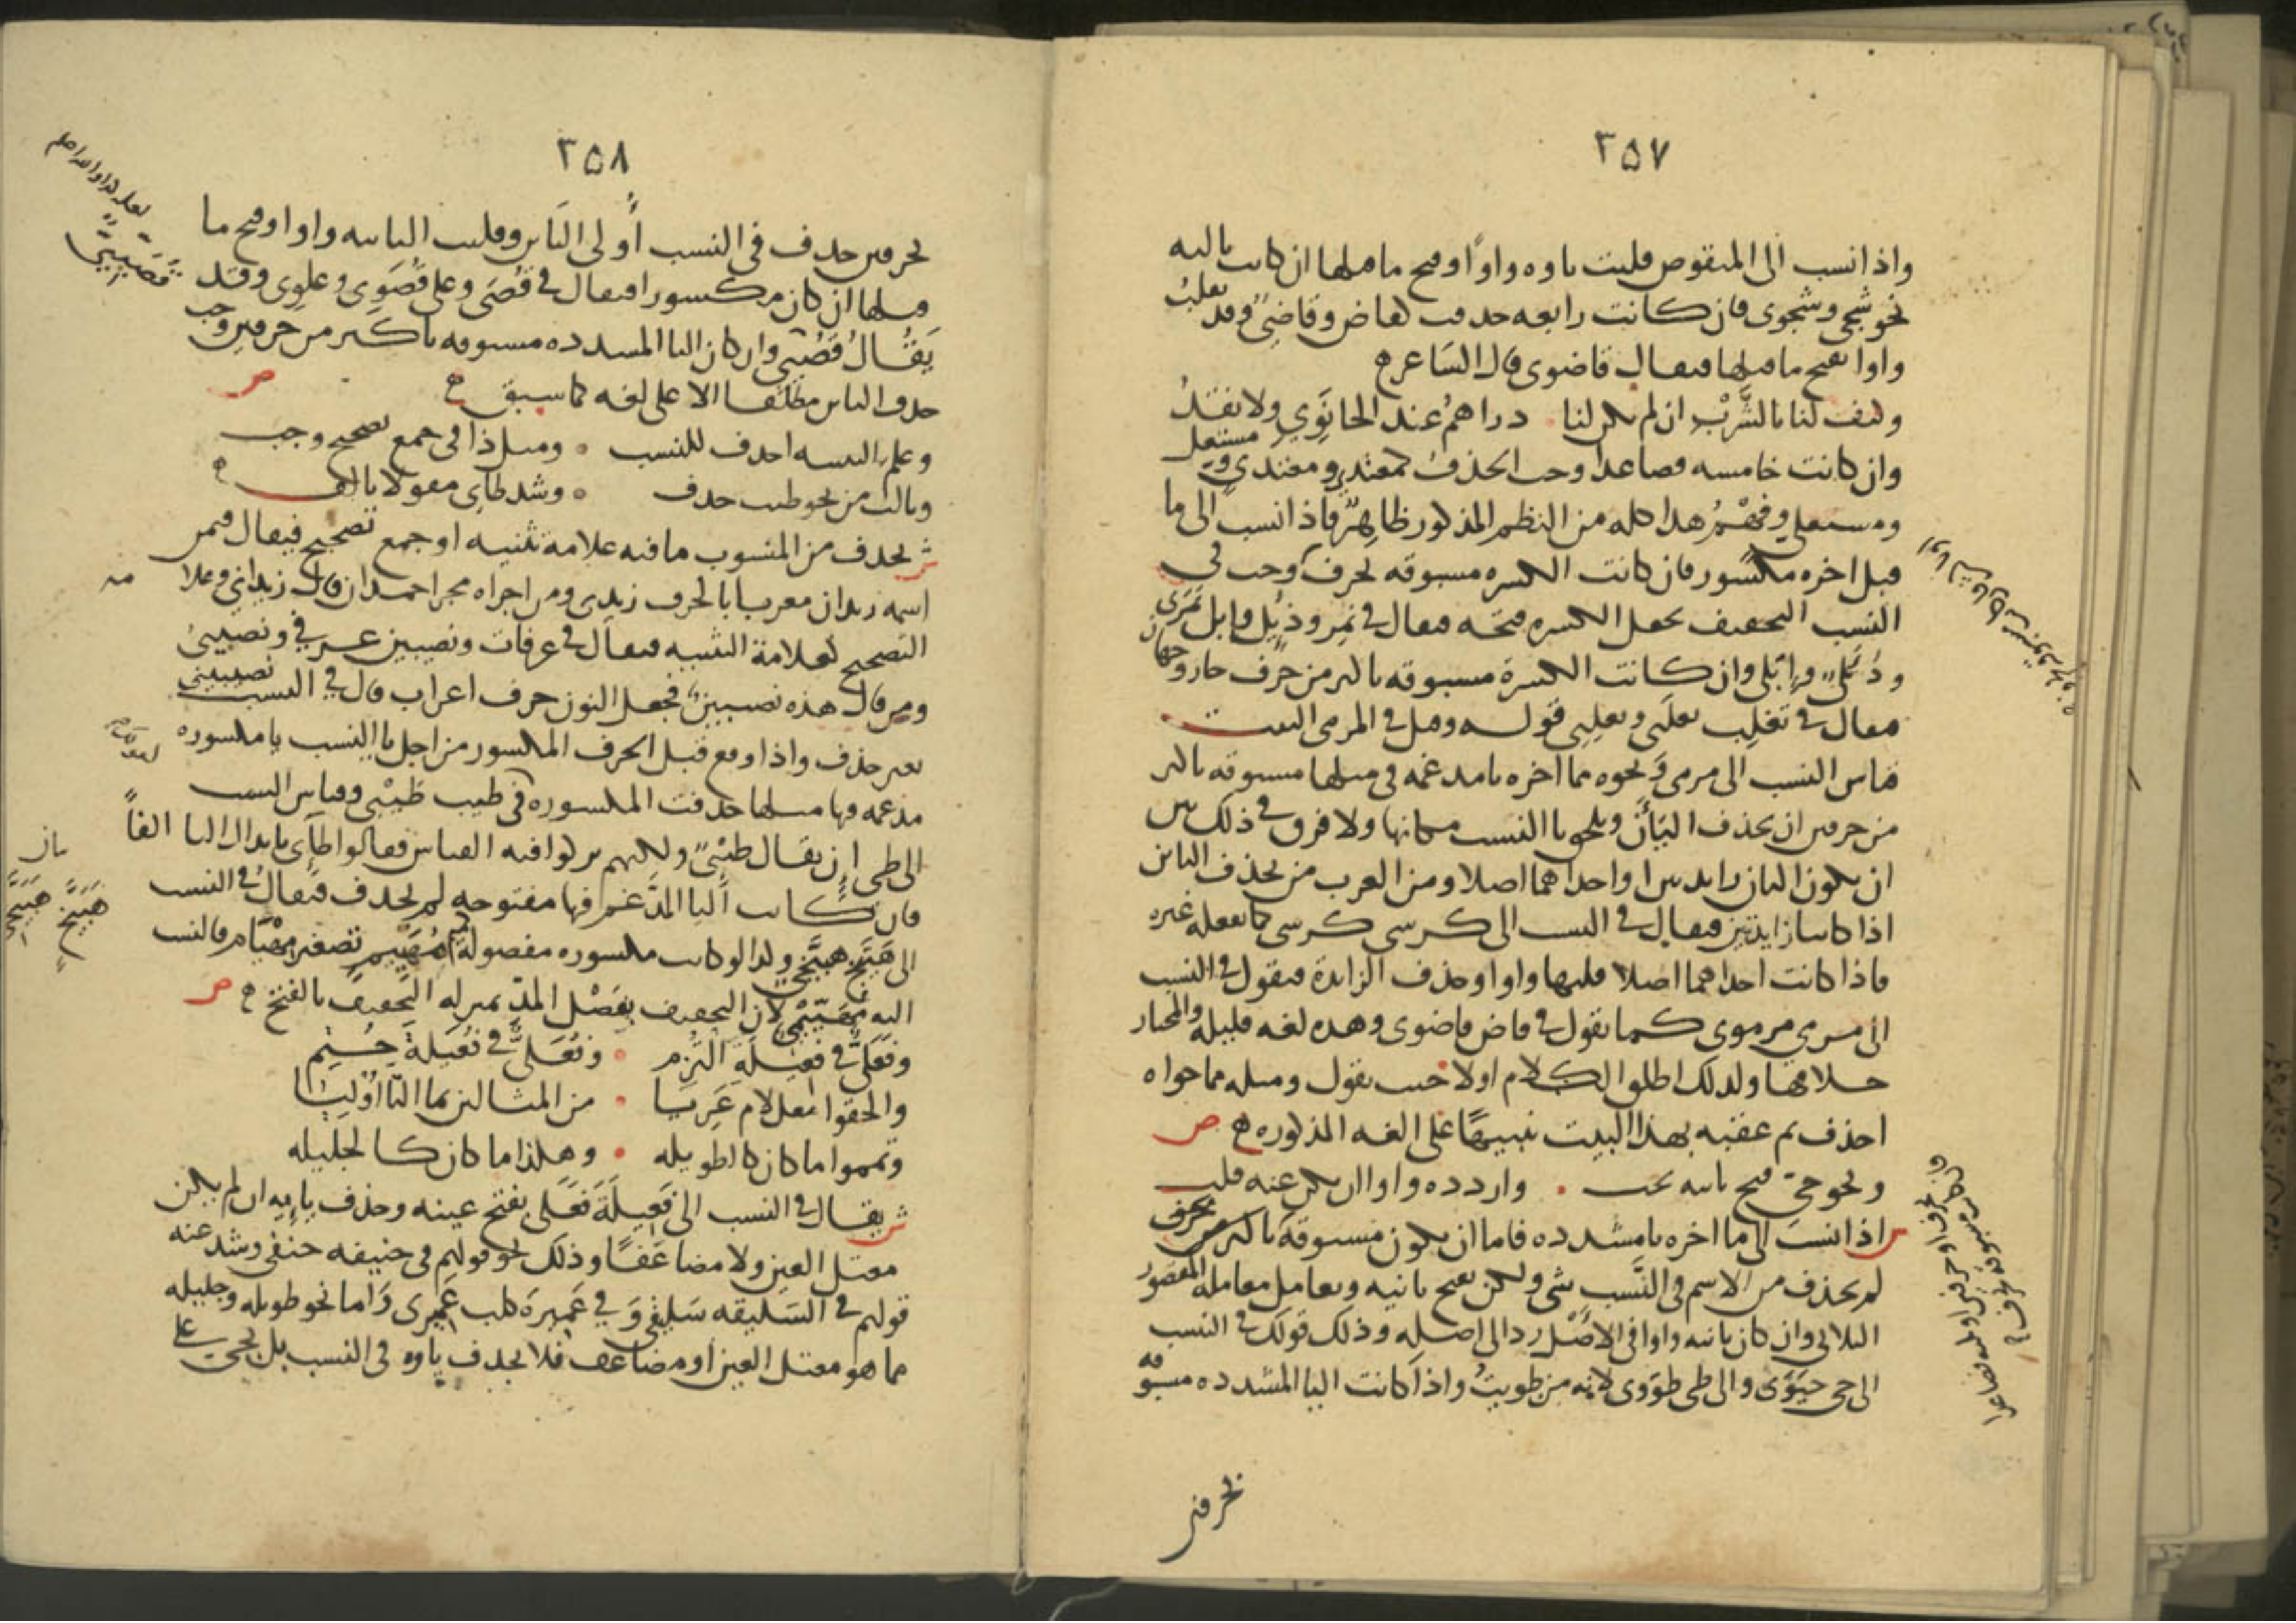 ٣٥٧
واذا نسب الى المنقوص قلبت ياوه واوًا وفتح ما قبلها ان كانت ثالثه
نحو شجٍ وشجوى فان كانت رابعه حذفت كقاض وقاضىّ وقد تقلبُ
واوا بفتح ما قبلها فيقال قاضوى قال الشاعر
وكيف لنا بالشُّرْبِ ان لم يكن لنا دراهمُ عند الحانَوِي ولا نقدُ
وان كانت خامسه فصاعدا وجب الحذف كمعتدٍ ومعتدى ومستعل
ومستعلى وفَهْمُ هذا كله من النظم المذكور ظاهرٌ فاذا نسب الى ما
قبل اخره مكسور فان كانت الكسره مسبوقه بحرف وجب فى
النسب التخفيف بجعل الكسره فتحه فيقال فى نَمِر ودُئِل وابل نَمَرى
ودُئَلىّ وإبَلى وان كانت الكسرة مسبوقه باكثر من حرف جاز وجهان
فيقال فى تغلِب تغلَبى وتغلِبى قوله وقيل فى المرمى البيت
قياس النسب الى مرمى ونحوه مما اخره يا مدغمه فى مثلها مسبوقه باكثر
من حرفين ان يحذف اليأان ويلحق يا النسب مكانها ولا فرق فى ذلك بين
ان يكون اليان زايدين او احداهما اصلا ومن العرب من يحذف اليائين
اذا كانتا زايدتين فيقال فى النسب الى كرسى كرسى كما يفعله غيره
فاذا كانت احداهما اصلا قلبها واوا وحذف الزايدة فيقول فى النسب
الى مرمى مرموى كما تقول فى قاض قاضوى وهذه لغه قليله والمختار
خلافها ولذلك اطلق الكلام اولا حيث يقول ومثله مما حواه
احذف ثم عقبه بهذا البيت تنبيهًا على اللغه المذكوره ص
ونحو حىّ فتح ثانيه يجب واردده واوا ان يكن عنه قلب
اذا نسب الى ما اخره يا مشدده فاما ان يكون مسبوقه باكثر من حرف
لم يحذف من الاسم فى النَّسب شى ولكن يفتح ثانيه ويعامل معاملة المقصور
الثلاثى وان كان ثانيه واوا فى الاصْل رد الى اصله وذلك قولك فى النسب
الى حى حيَوى والى طى طوَوى لانه من طويتُ واذا كانت اليا المشدده مسبوقه
بحرفين
٣٥٨
بحرفين حذف فى النسب أُولى اليَاين وقلبت الثانيه واوا وفتح ما
قبلها ان كان مكسورا فيقال فى قُصَى وعلى قُصَوِى وعلوى وقد
يَقُالُ قُصَيّى وان كان اليا المشدده مسبوقه باكثر من حرفين وجب
حذف اليائين مطلقا الا على لغه كما سبق ص
وعلم التثنيه احذف للنسب ومثل ذا فى جمع تصحيح وجب
وثالث من نحو طيب حذف وشذ طاى مقولا بالالف
ش يحذف من المنسوب ما فيه علامة تثنيه او جمع تصحيح فيقال فيمن
اسمه زيدان معربا بالحرف زيدى ومن اجراه مجرا حمدان قال زيدانى وعلامه
التصحيح كعلامة التثنيه فيقال فى عرفات ونصيبين عرفى ونصيبىُ
ومن قال هذه نصيبينٌ فجعل النون حرف اعراب قال فى النسب نصيبينى
بغير حذف واذا وقع قبل الحرف المكسور من اجل يا النسب يا مكسوره
مدغمه فيها مثلها حذفت المكسوره فى طيب طَيْبى وقياس النسب
الى طى ان يقال طيْئىّ ولكنهم تركوا فيه القياس فقالوا طآى بابدال اليا الفاً
فان كانت اليا المدَّغم فيها مفتوحه لم تحذف فيقال فى النسب
الى هَبَيَّخ هبَيَّخى وكذا لو كانت مكسوره مفصوله كمُهَييم تصغير مهْيام فالنسب
اليه مُهَيّيمى لان التخفيف بفَصْل المدّ بمنزله التخفيف بالفتح ص
وفَعَلىّ فى فعيلة التزم وفُعَلىّ فى فُعَيلة حُتِم
والحقوا معل لام عَرِيا من المثالين بما التا اُوليا
وتمموا ما كان كالطويله وهكذا ما كان كالجليله
ش يقال فى النسب الى فَعِيلَة فَعَلى بفتح عينه وحذف يايه ان لم يكن
معتل العين ولا مضاعَفًا وذلك نحو قولهم فى حنيفه حنفى وشذ عنه
قولهم فى السَليقه سَليقى وَ فى عَميرَة كلب عَميرى وَاما نحو طويله وجليله
مما هو معتل العين او مضاعف فلا يحذف ياوه فى النسب بل يجى على